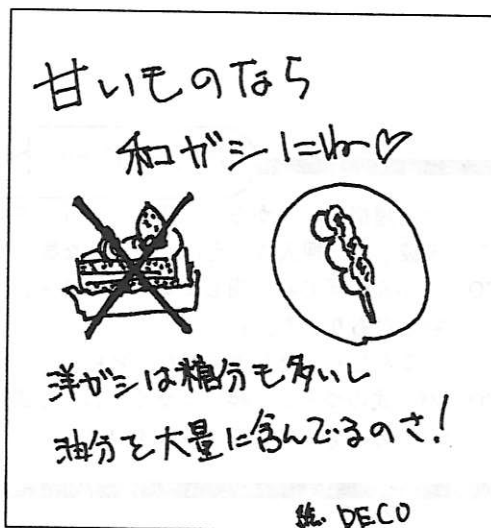 甘いものなら
和ガシにね♡
洋ガシは糖分も多いし
油分を大量に含んでるのさ!
絵 DECO